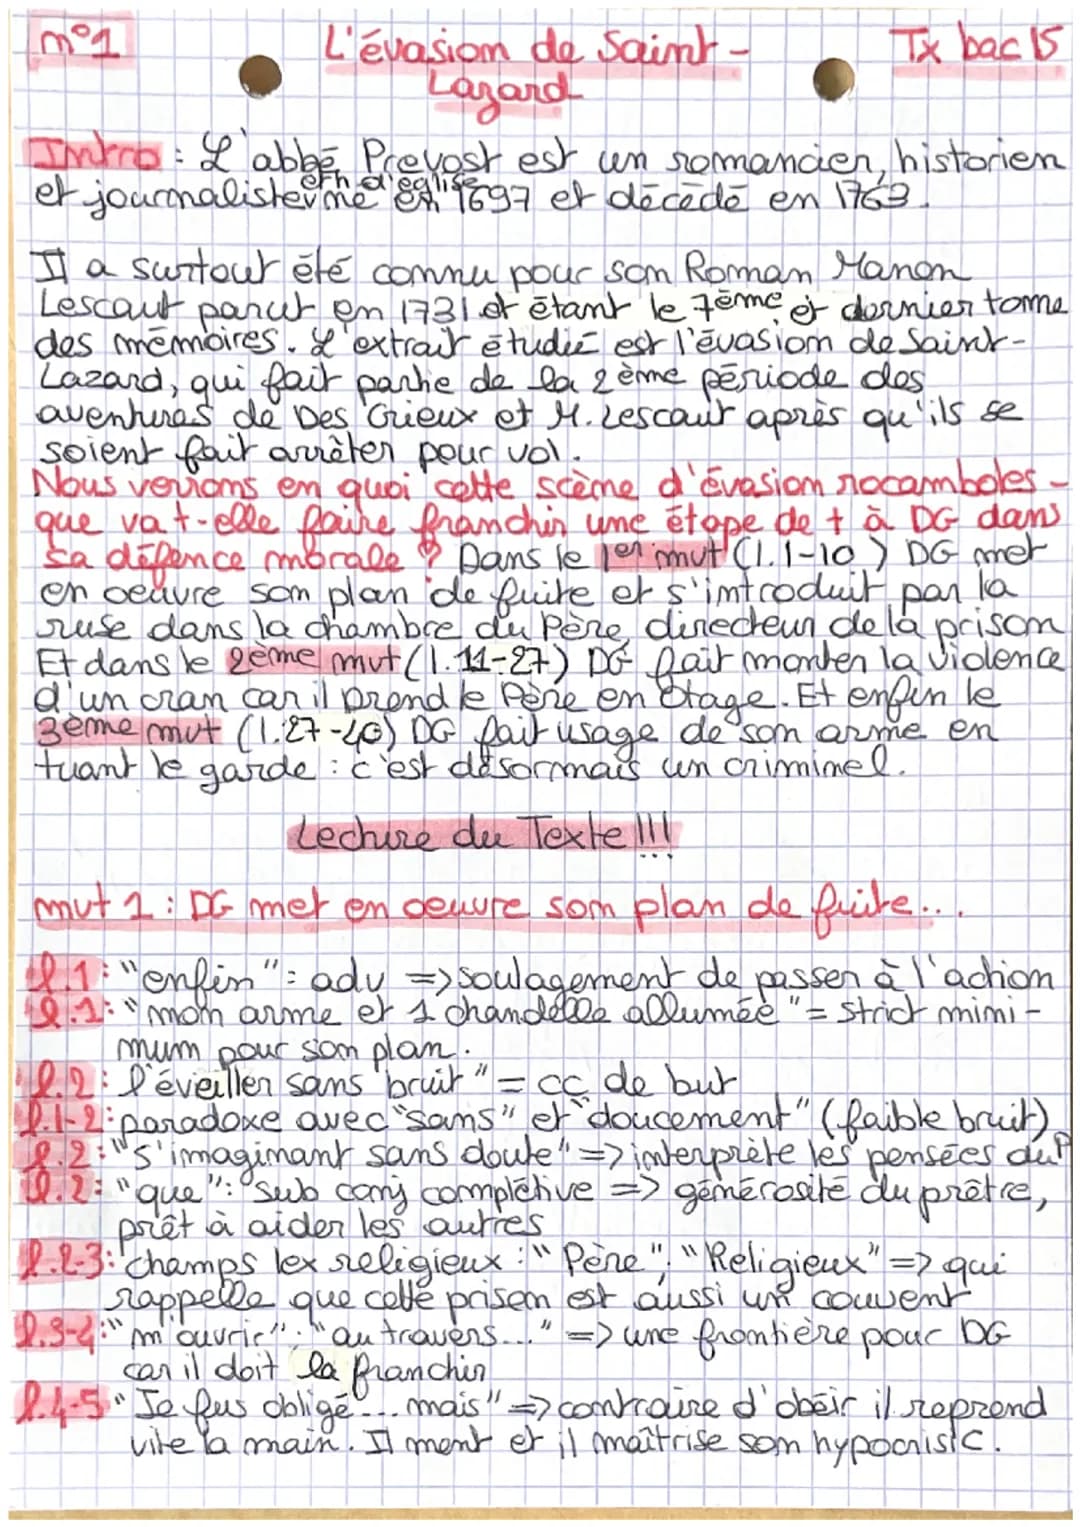 n°1
L'évasion de Saint-
Lazard
Tx bac 15
Intro : L'abbé Prevost est un romancier, historien
et h d'église
et journaliste né en 1697 et décédé en 1763.
Il a surtout été connu pour son Roman Manon
Lescaut parut en 1731 et étant le 7ème et dernier tome
des mémoires. L'extrait étudié est l'évasion de Saint-
Lazard, qui fait partie de la 2ème période des
aventures de Des Grieux et M. Lescaut après qu'ils se
soient fait arrêter pour vol.
Nous verrons en quoi cette scène d'évasion rocamboles-
que va t-elle faire franchir une étape de + à DG dans
sa défence morale ? Dans le 1er mvt (l.1-10) DG met
en oeuvre son plan de fuite et s'introduit par la
ruse dans la chambre du Père, directeur de la prison
Et dans le 2ème mvt (l.11-27) DG fait monter la violence
d'un cran car il prend le Père en otage. Et enfin le
3ème mvt (l.27-40) DG fait usage de son arme en
tuant le garde : c'est désormais un criminel.
Lecture du Texte !!!
mvt 1 : DG met en oeuvre son plan de fuite...
l.1: "enfin" : adv => soulagement de passer à l'action
l.1: "mon arme et 1 chandelle allumée" = strict mini-
mum pour son plan.
l.2: l'éveiller sans bruit" = cc de but
l.1-2: paradoxe avec "sans" et "doucement" (faible bruit)
l.2: "s'imaginant sans doute" => interprète les pensées du P
l.2: "que": sub conj complétive => générosité du prêtre,
prêt à aider les autres
l.2-3: champs lex religieux : "Père", "Religieux" => qui
rappelle que cette prison est aussi un couvent
l.3-4: "m'ouvrir". "au travers..." => une frontière pour DG
car il doit la franchir
l.4-5 "Je fus obligé... mais" => contraire d'obéir il reprend
vite la main. Il ment et il maîtrise son hypocrisie.